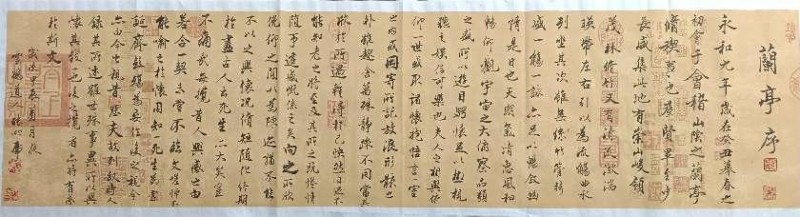 蘭亭序
永和九年歲在癸丑暮春之
初會于會稽山陰之蘭亭
脩禊事也羣賢畢至少
長咸集此地有崇山峻領
茂林脩竹又有清流激湍
暎帶左右引以為流觴曲水
列坐其次雖無絲竹管弦之
盛一觴一詠亦足以暢敘幽
情是日也天朗氣清惠風和
暢仰觀宇宙之大俯察品類
之盛所以遊目騁懷足以極視
聽之娛信可樂也夫人之相與俯
仰一世或取諸懷抱悟言一室
之內或因寄所託放浪形骸之
外雖趣舍萬殊靜躁不同當其
欣於所遇暫得於己怏然自足不
知老之將至及其所之既惓情
隨事遷感慨係之矣向之所欣
俛仰之間以為陳迹猶不能
不以之興懷況脩短隨化終期
於盡古人云死生亦大矣豈
不痛哉每攬昔人興感之由
若合一契未嘗不臨文嗟悼不
能喻之於懷固知一死生為虛
誕齊彭殤為妄作後之視今
亦由今之視昔悲夫故列敘時人
錄其所述雖世殊事異所以興
懷其致一也後之攬者亦將有感
於斯文